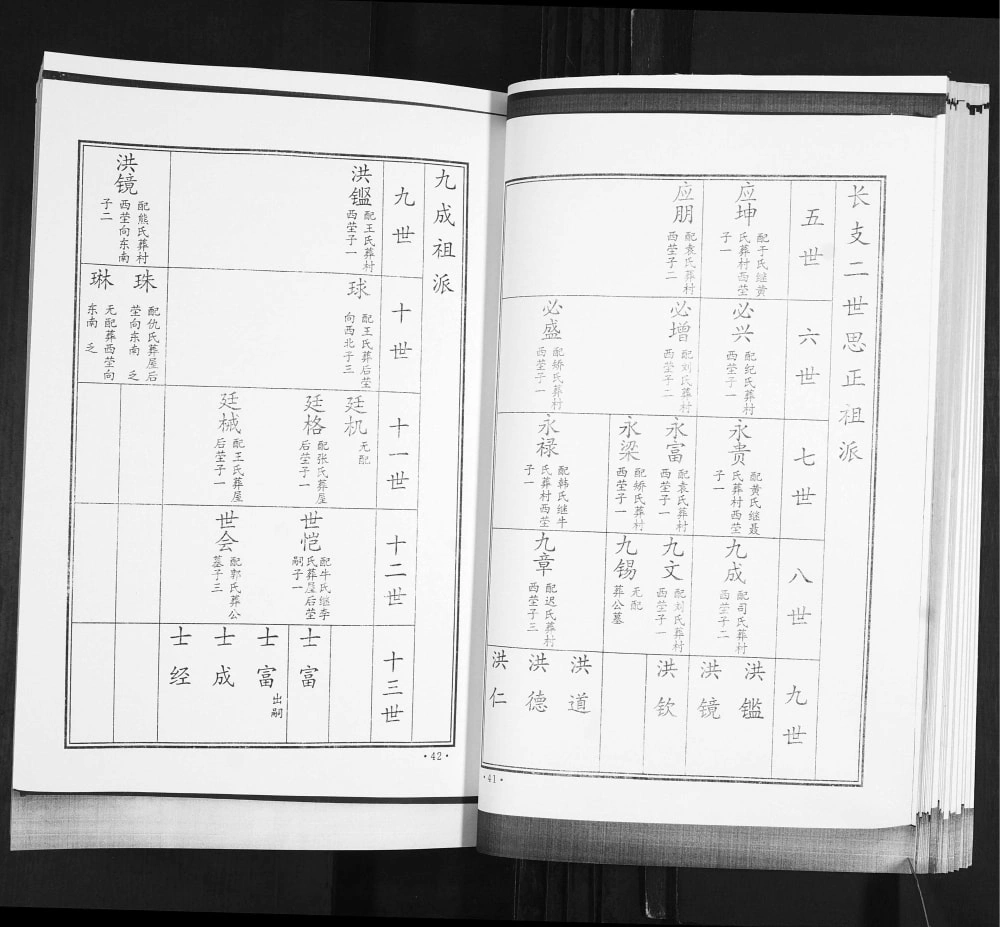 长支二世思正祖派
五世
应坤
配于氏继黄
氏葬村西茔
子一
应朋
配袁氏葬村
西茔子二
六世
必兴
配纪氏葬村
西茔子一
必增
配刘氏葬村
西茔子二
必盛
配矫氏葬村
西茔子一
七世
永贵
配黄氏继聂
氏葬村西茔
子一
永富
配袁氏葬村
西茔子一
永梁
配矫氏葬村
西茔子一
永禄
配韩氏继牛
氏葬村西茔
子一
八世
九成
配司氏葬村
西茔子二
九文
配刘氏葬村
西茔子一
九锡
无配
葬公墓
九章
配迟氏葬村
西茔子三
九世
洪鑑
洪镜
洪钦
洪道
洪德
洪仁
·41·
九成祖派
九世
洪鑑
配王氏葬村
西茔子一
洪镜
配熊氏葬村
西茔向东南
子二
十世
球
配王氏葬后茔
向西北子三
珠
配仇氏葬屋后
茔向东南 乏
琳
无配葬西茔向
东南 乏
十一世
廷机
无配
廷格
配张氏葬屋
后茔子一
廷械
配王氏葬屋
后茔子一
十二世
世恺
配牛氏继李
氏葬屋后茔
嗣子一
世会
配郭氏葬公
墓子三
十三世
士富
士富
出嗣
士成
士经
·42·